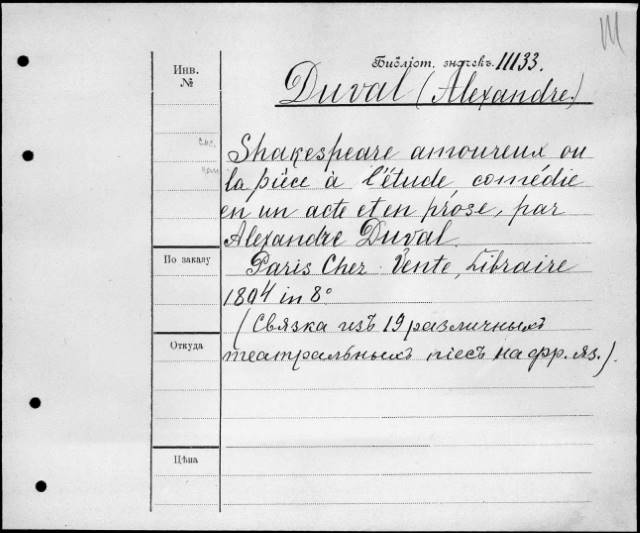 Инв.
№
Библіот. значекъ 11133.
Duval (Alexandre)
Shakespeare amoureux ou
la pièce à l'étude, comédie
en un acte et en prose, par
Alexandre Duval.
По заказу
Paris Chez Vente, Libraire
1804 in 8°
(Связка изъ 19 различныхъ
Откуда
театральныхъ пiесъ на фр. яз.).
Цѣна